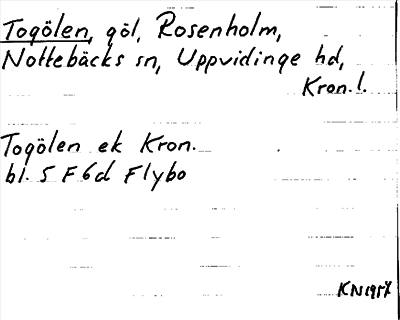 Togölen, göl, Rosenholm,
Nottebäcks sn, Uppvidinge hd,
Kron.l.
Togölen ek Kron.
bl. 5 F 6d Flybo